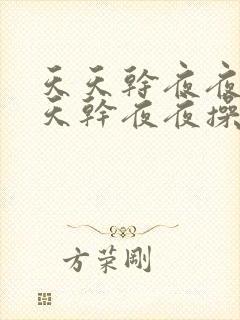 天天幹夜夜
天幹夜夜操
方荣剛